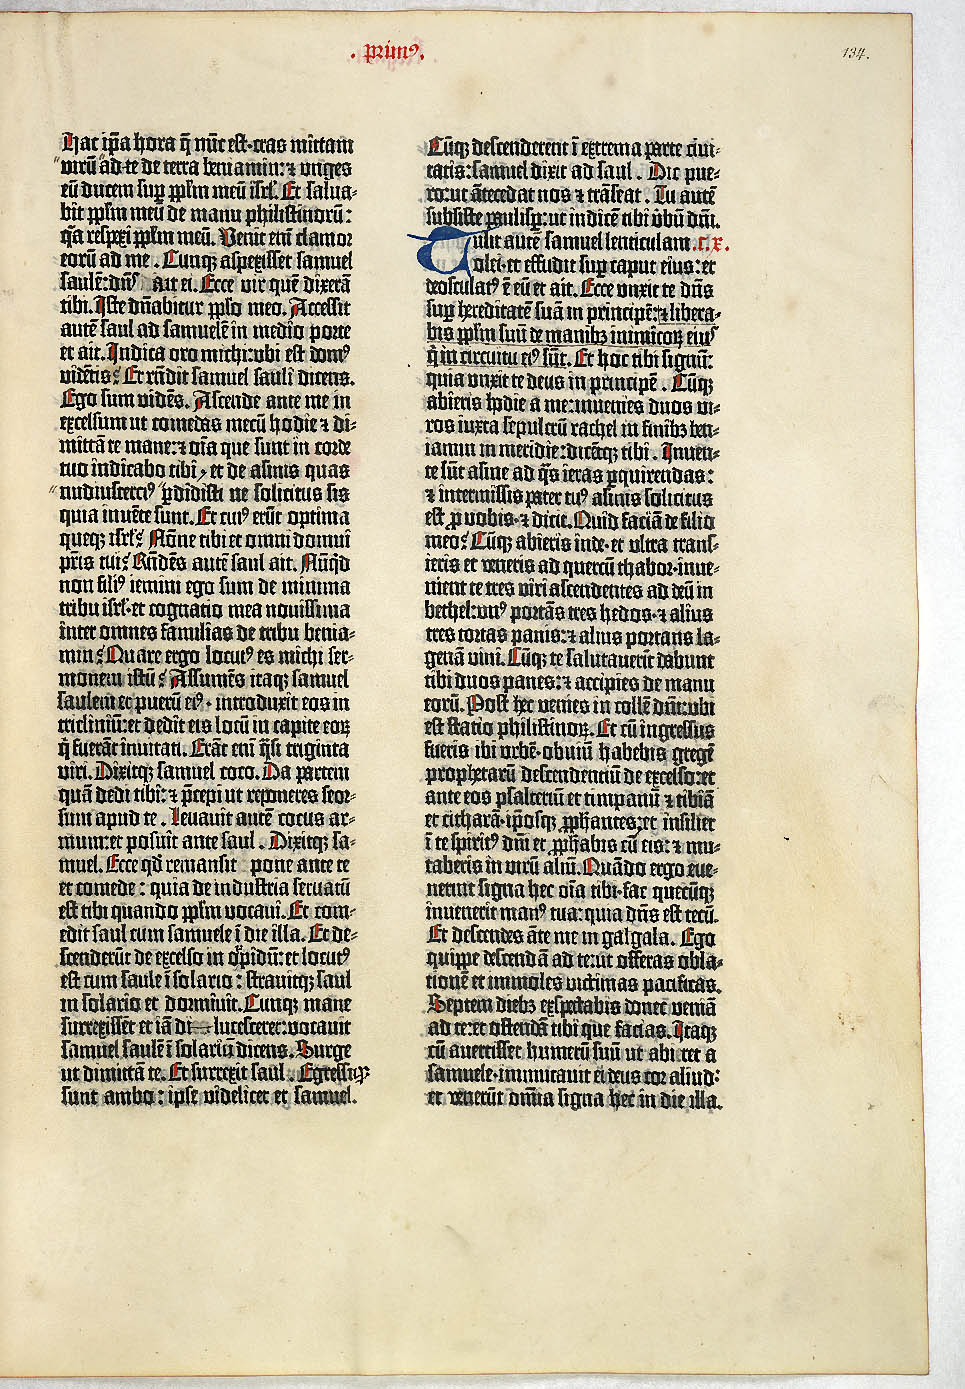 . primꝰ.
134.
Hac ip̄a hora q̄ nūc est·cras mittam
virū ad te de terra beniamin: ⁊ unges
eū ducem sup̄ pp̄lm meū isrl̓. Et salua-
bit pp̄lm meū de manu philistinorū:
q̄a respexi pp̄lm meū. Venit em̄ clamor
eorū ad me. Cumqꝫ aspexisset samuel
saulē: dn̄s ait ei. Ecce vir quē dixerā
tibi. Iste dn̄abitur pp̄lo meo. Accessit
autē saul ad samuelē in medio porte
et ait. Indica oro michi: ubi est domꝰ
videntis? Et rn̄dit samuel sauli dicens.
Ego sum vidēs. Ascende ante me in
excelsum ut comedas mecū hodie ⁊ di-
mittā te mane: ⁊ oīa que sunt in corde
tuo indicabo tibi, et de asinis quas
nudiusterciꝰ p̄didisti ne solicitus sis
quia inuēte sunt. Et cuiꝰ erūt optima
queqꝫ isrl̓? Nōne tibi et omni domui
pr̄is tui? Rn̄dēs autē saul ait. Nūq̄d
non filiꝰ iemini ego sum de minima
tribu isrl̓·et cognatio mea nouissima
inter omnes familias de tribu benia-
min? Quare ergo locutꝰ es michi ser-
monem istū? Assumēs itaqꝫ samuel
saulem et puerū eiꝰ· introduxit eos in
tricliniū: et dedit eis locū in capite eoꝝ
q̄ fuerāt inuitati. Erāt em̄ q̄si triginta
viri. Dixitqꝫ samuel coco. Da partem
quā dedi tibi: ⁊ p̄cepi ut reponeres seor-
sum apud te. Leuauit autē cocus ar-
mum: et posuit ante saul. Dixitqꝫ sa-
muel. Ecce qd̄ remansit pone ante te
et comede: quia de industria seruatū
est tibi quando pp̄lm vocaui. Et com-
edit saul cum samuele ī die illa. Et de-
scenderūt de excelso in opidū: et locutꝰ
est cum saule ī solario: strauitqꝫ saul
in solario et dormiuit. Cumqꝫ mane
surrexissēt et iā di lucesceret: vocauit
samuel saulē ī solariū dicens. Surge
ut dimittā te. Et surrexit saul. Egressiqꝫ
sunt ambo: ipse videlicet et samuel.
Cūqꝫ descenderent ī extrema parte ciui-
tatis: samuel dixit ad saul. Dic pue-
ro: ut ātecedat nos ⁊ trāseat. Tu autē
subsiste paulisp̄: ut indicē tibi v̄bū dn̄i.
Tulit autē samuel lenticulam c.x.
olei·et effudit sup̄ caput eius: et
deosculatꝰ ē eū et ait. Ecce unxit te dn̄s
sup̄ hereditatē suā in principē: ⁊ libera-
bis pp̄lm suū de manibꝫ inimicoꝝ eiꝰ
q̄ in circuitu eiꝰ sūt. Et hoc tibi signū:
quia unxit te deus in principē. Cūqꝫ
abieris hodie a me: inuenies duos vi-
ros iuxta sepulcrū rachel in finibꝫ ben-
iamin in meridie: dicētqꝫ tibi. Inuen-
te sūt asine ad q̄s ieras p̄quirendas:
⁊ intermissis pater tuꝰ asinis solicitus
est p̄ vobis·⁊ dicit. Quid faciā de filio
meo? Cūqꝫ abieris inde·et ultra trans-
ieris et veneris ad quercū thabor·inue-
nient te tres viri ascendentes ad deū in
bethel: unꝰ portās tres hedos·⁊ alius
tres tortas panis: ⁊ alius portans la-
genā vini. Cūqꝫ te salutauerīt dabunt
tibi duos panes: ⁊ accipies de manu
eorū. Post hec venies in collē dn̄i: ubi
est statio philistinoꝝ. Et cū ingressus
fueris ibi urbē·obuiū habebis gregē
prophetarū descendenciū de excelso: et
ante eos psalteriū et timpanū ⁊ tibiā
et citharā·ip̄osqꝫ pp̄hantes: et insiliet
ī te spiritꝰ dn̄i et pp̄habis cū eis: ⁊ mu-
taberis in virū aliū. Quādo ergo eue-
nerint signa hec oīa tibi·fac quecūqꝫ
inuenerit manꝰ tua: quia dn̄s est tecū.
Et descendes āte me in galgala. Ego
quippe descendā ad te: ut offeras obla-
tionē et immoles victimas pacificas.
Septem diebꝫ expectabis donec veniā
ad te: et ostendā tibi que facias. Itaqꝫ
cū auertisset humerū suū ut abiret a
samuele·inmutauit ei deus cor aliud:
et venerūt omīa signa hec in die illa.